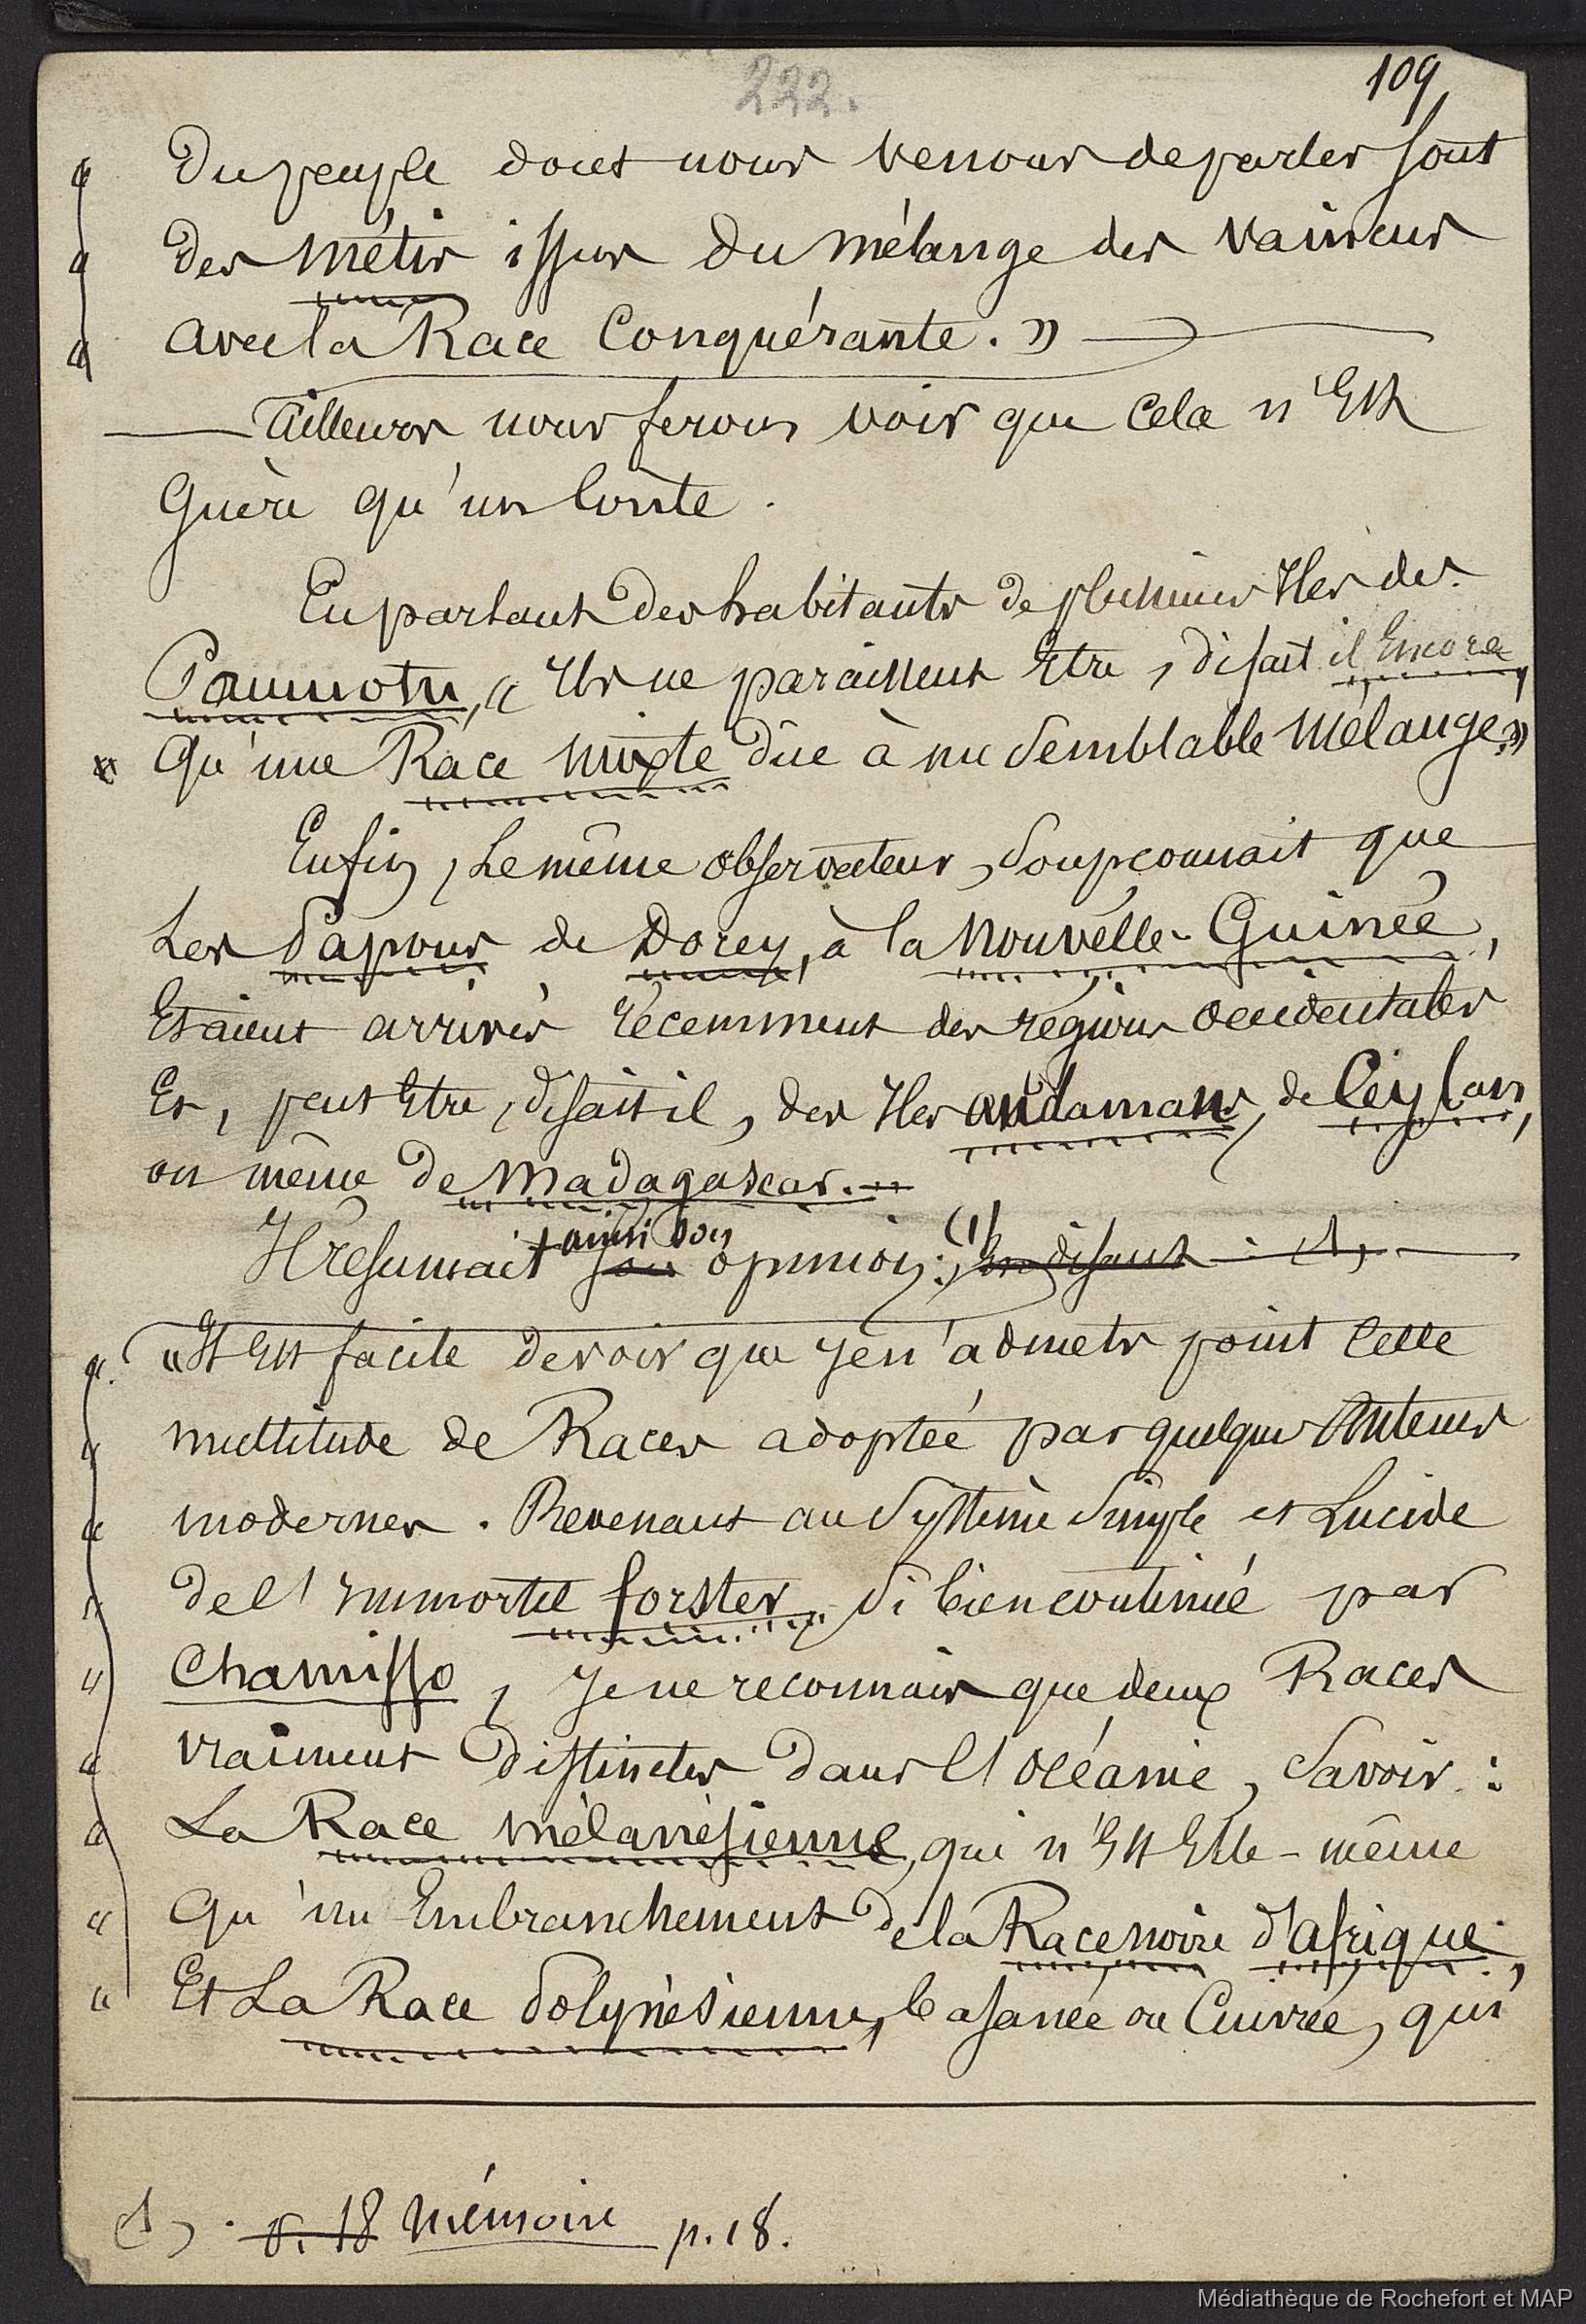 222.
109
" du peuple dont nous venons de parler sont
" des métis issus du mélange des vaincus
" avec la Race Conquérante. "
— Ailleurs nous ferons voir que cela n'Est
Guère qu'un Conte.
En parlant des habitants de plusieurs Iles des
Paumotu, " Ils ne paraissent Etre, disait il Encore,
" qu'une Race mixte dûe à un semblable mélange. "
Enfin, le même observateur, soupçonnait que
Les Papous de Dorey, à la Nouvelle-Guinée,
Etaient arrivés récemment des régions occidentales
Et, peut Etre, disait il, des Iles andamans, de Ceylan,
ou même de Madagascar. —
Il résumait ainsi son son opinion : (1) En disant : (1) —
" " Il Est facile de voir que je n'admets point cette
" multitude de Races adoptée par quelques Auteurs
" modernes. Revenant au systême simple et Lucide
" de l'immortel forster, si bien continué par
" Chamisso, je ne reconnais que deux Races
" vraiment distinctes dans l'océanie, savoir :
" La Race mélanésienne, qui n'Est Elle-même
" qu'un Embranchement de la Race noire d'afrique ;
" Et La Race Polynésienne, basanée ou Cuivrée, qui
(1) . v. 18 mémoire p. 18.
Médiathèque de Rochefort et MAP